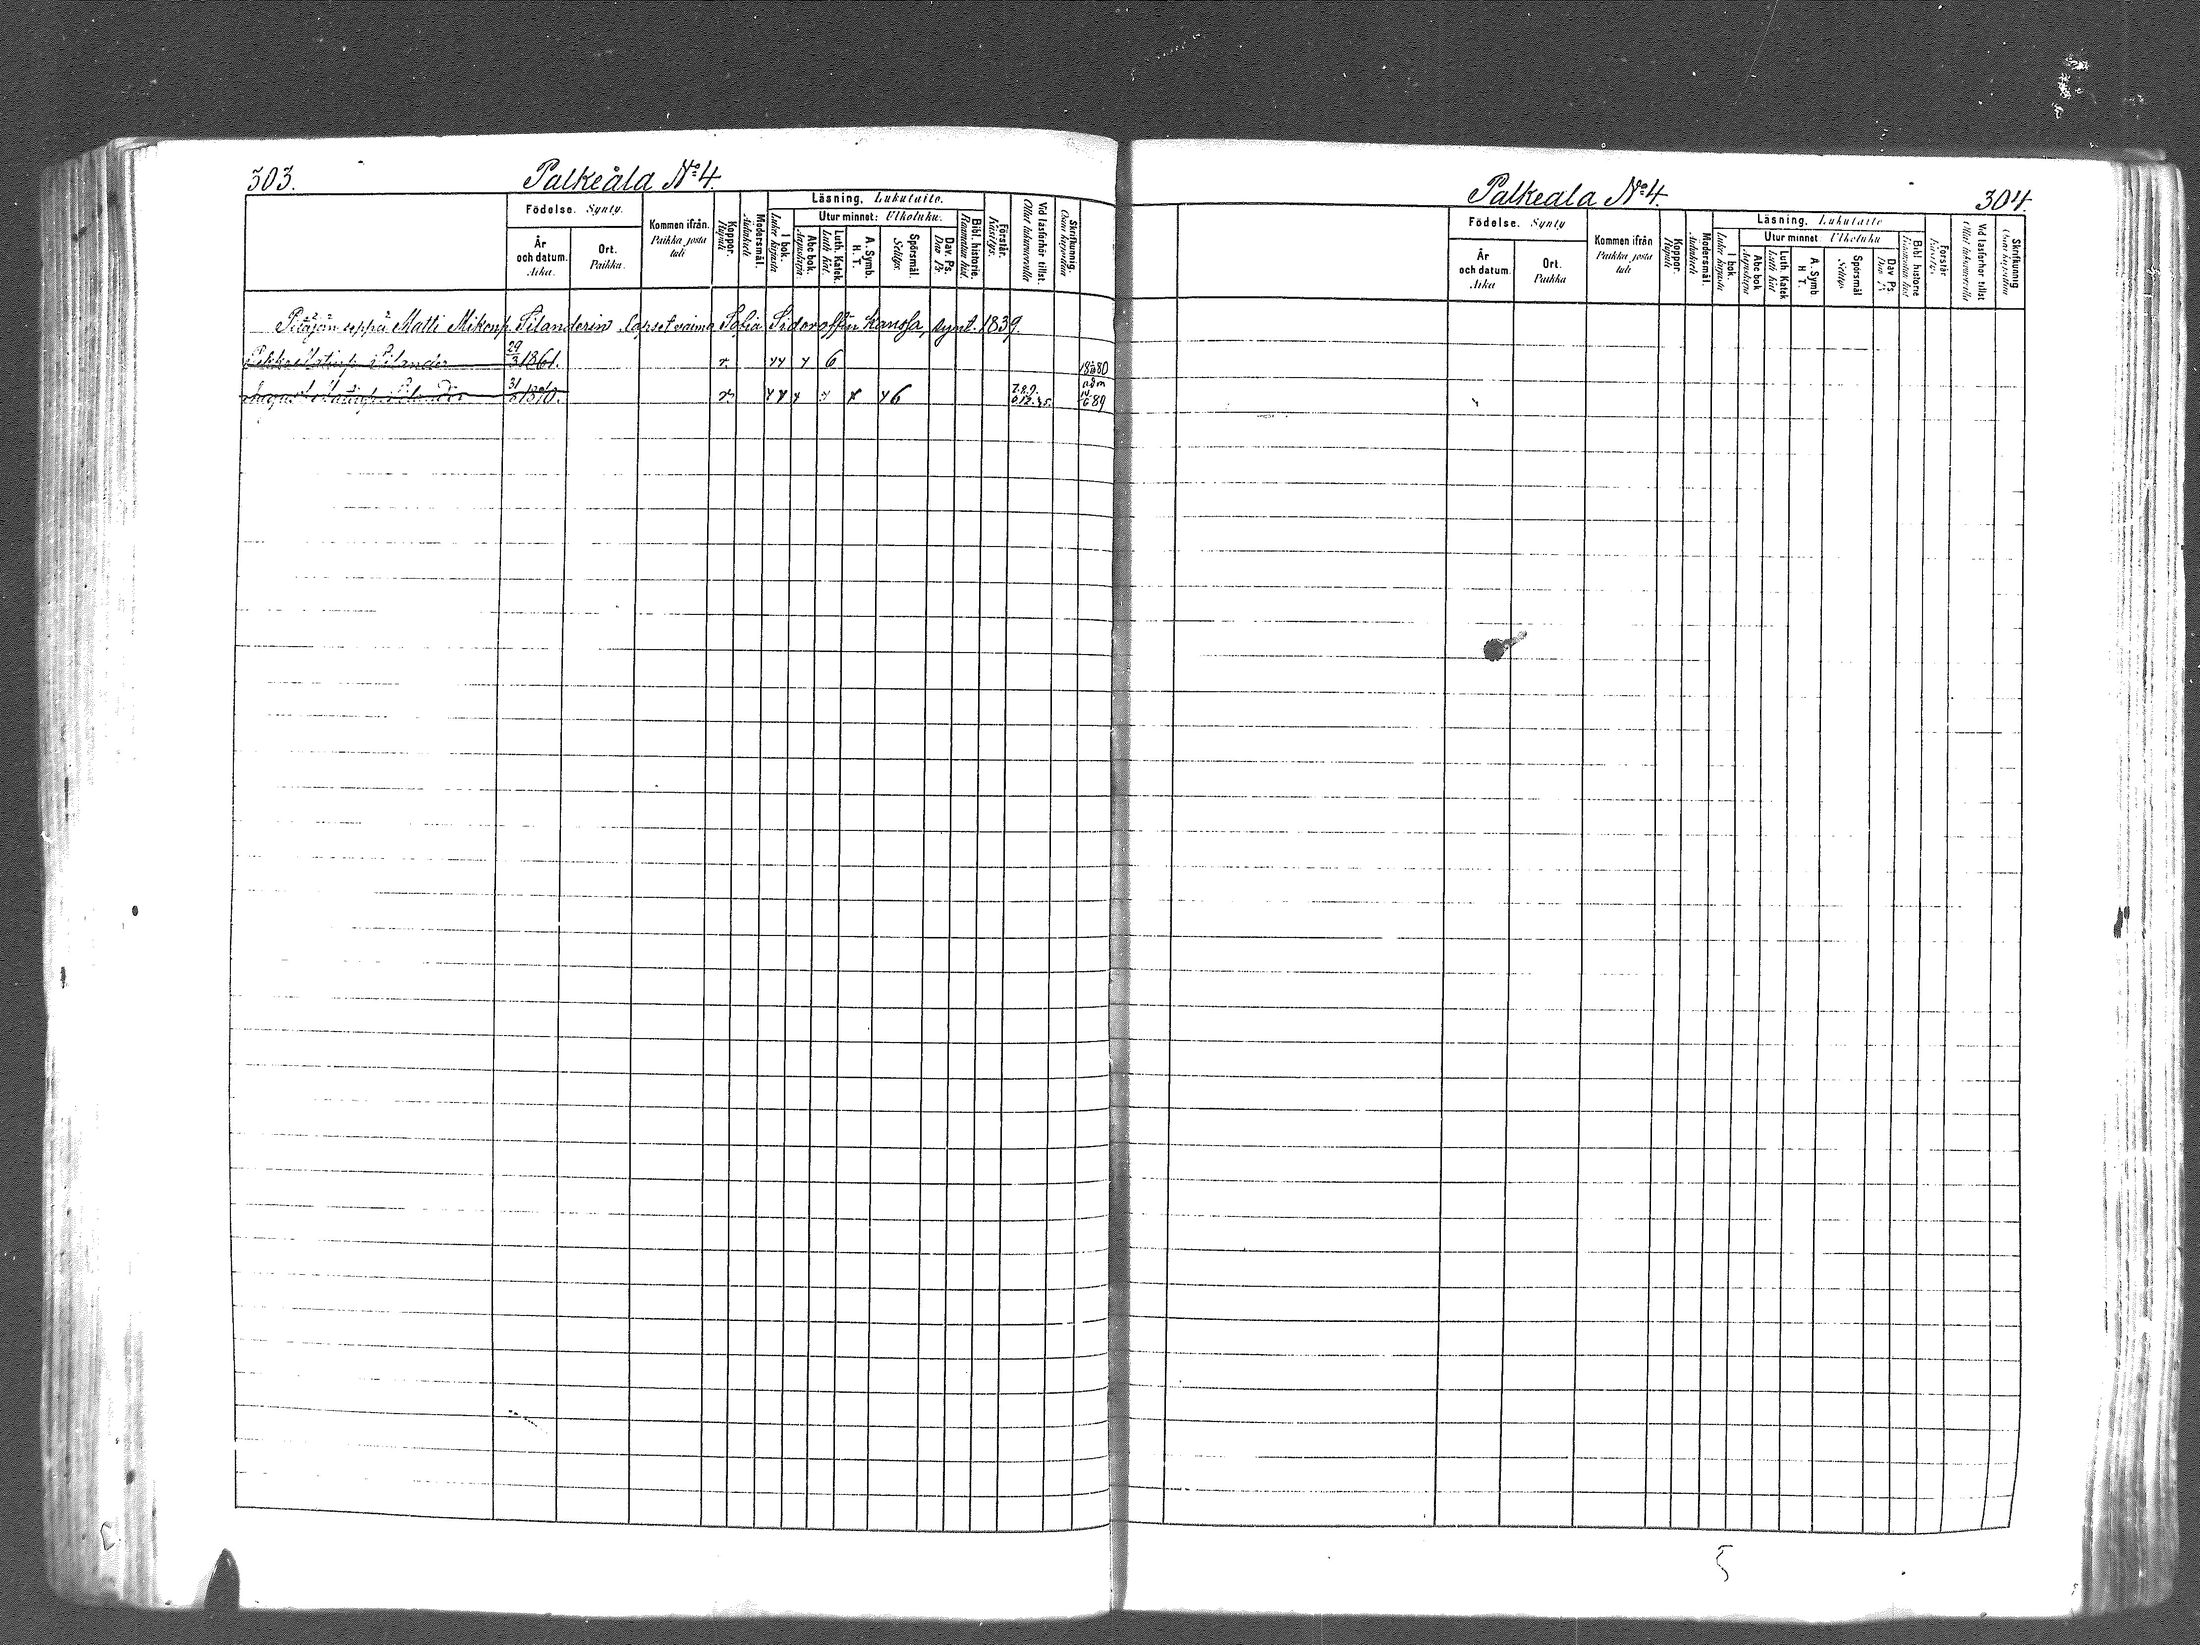 303.
Palkeala No 4.
Födelse. Synty.
År och datum. Aika.
Ort. Paikka.
Kommen ifrån. Paikka josta tuli
Koppor. Rupuli
Modersmål. Äidinkieli
Läsning, Lukutaito.
I bok. Luku kirjasta
Utur minnet: Ulkoluku.
Abc bok. Aapiskirja
Luth. Katek. Luth. kat.
A. Symb. H. T.
Spörsmål. Selitys.
Dav. Ps. Dav. Ps.
Bibl. historie. Raamatun hist.
Förstår. Käsitys.
Vid läsförhör tillst. Ollut lukuvuorolla
Skrifkunnig. Osaa kirjoittaa
Pitäjän seppä Matti Mikonp. Silanderin lapset vaimo Sofia Sidoroffin kanssa, synt. 1839.
Pekka Matinp. Silander 29/3 1861. x yy y 6 80
August Matinp. Silander 31 1870. x y y y y x y 6 7.8.9. 89
Palkeala No 4.
304.
Födelse. Synty
År och datum. Aika
Ort. Paikka
Kommen ifrån Paikka josta tuli
Koppor. Rupuli
Modersmål. Äidinkieli
Läsning. Lukutaito
I bok. Luku kirjasta
Utur minnet Ulkoluku
Abc bok Aapiskirja
Luth. Katek Luth Kat
A. Symb H T.
Spörsmål Selitys
Dav Ps Dav Ps
Bibl. historie Raamatun hist
Förstår Käsitys
Vid läsförhör tillst Ollut lukuvuorolla
Skrifkunnig Osaa kirjoittaa